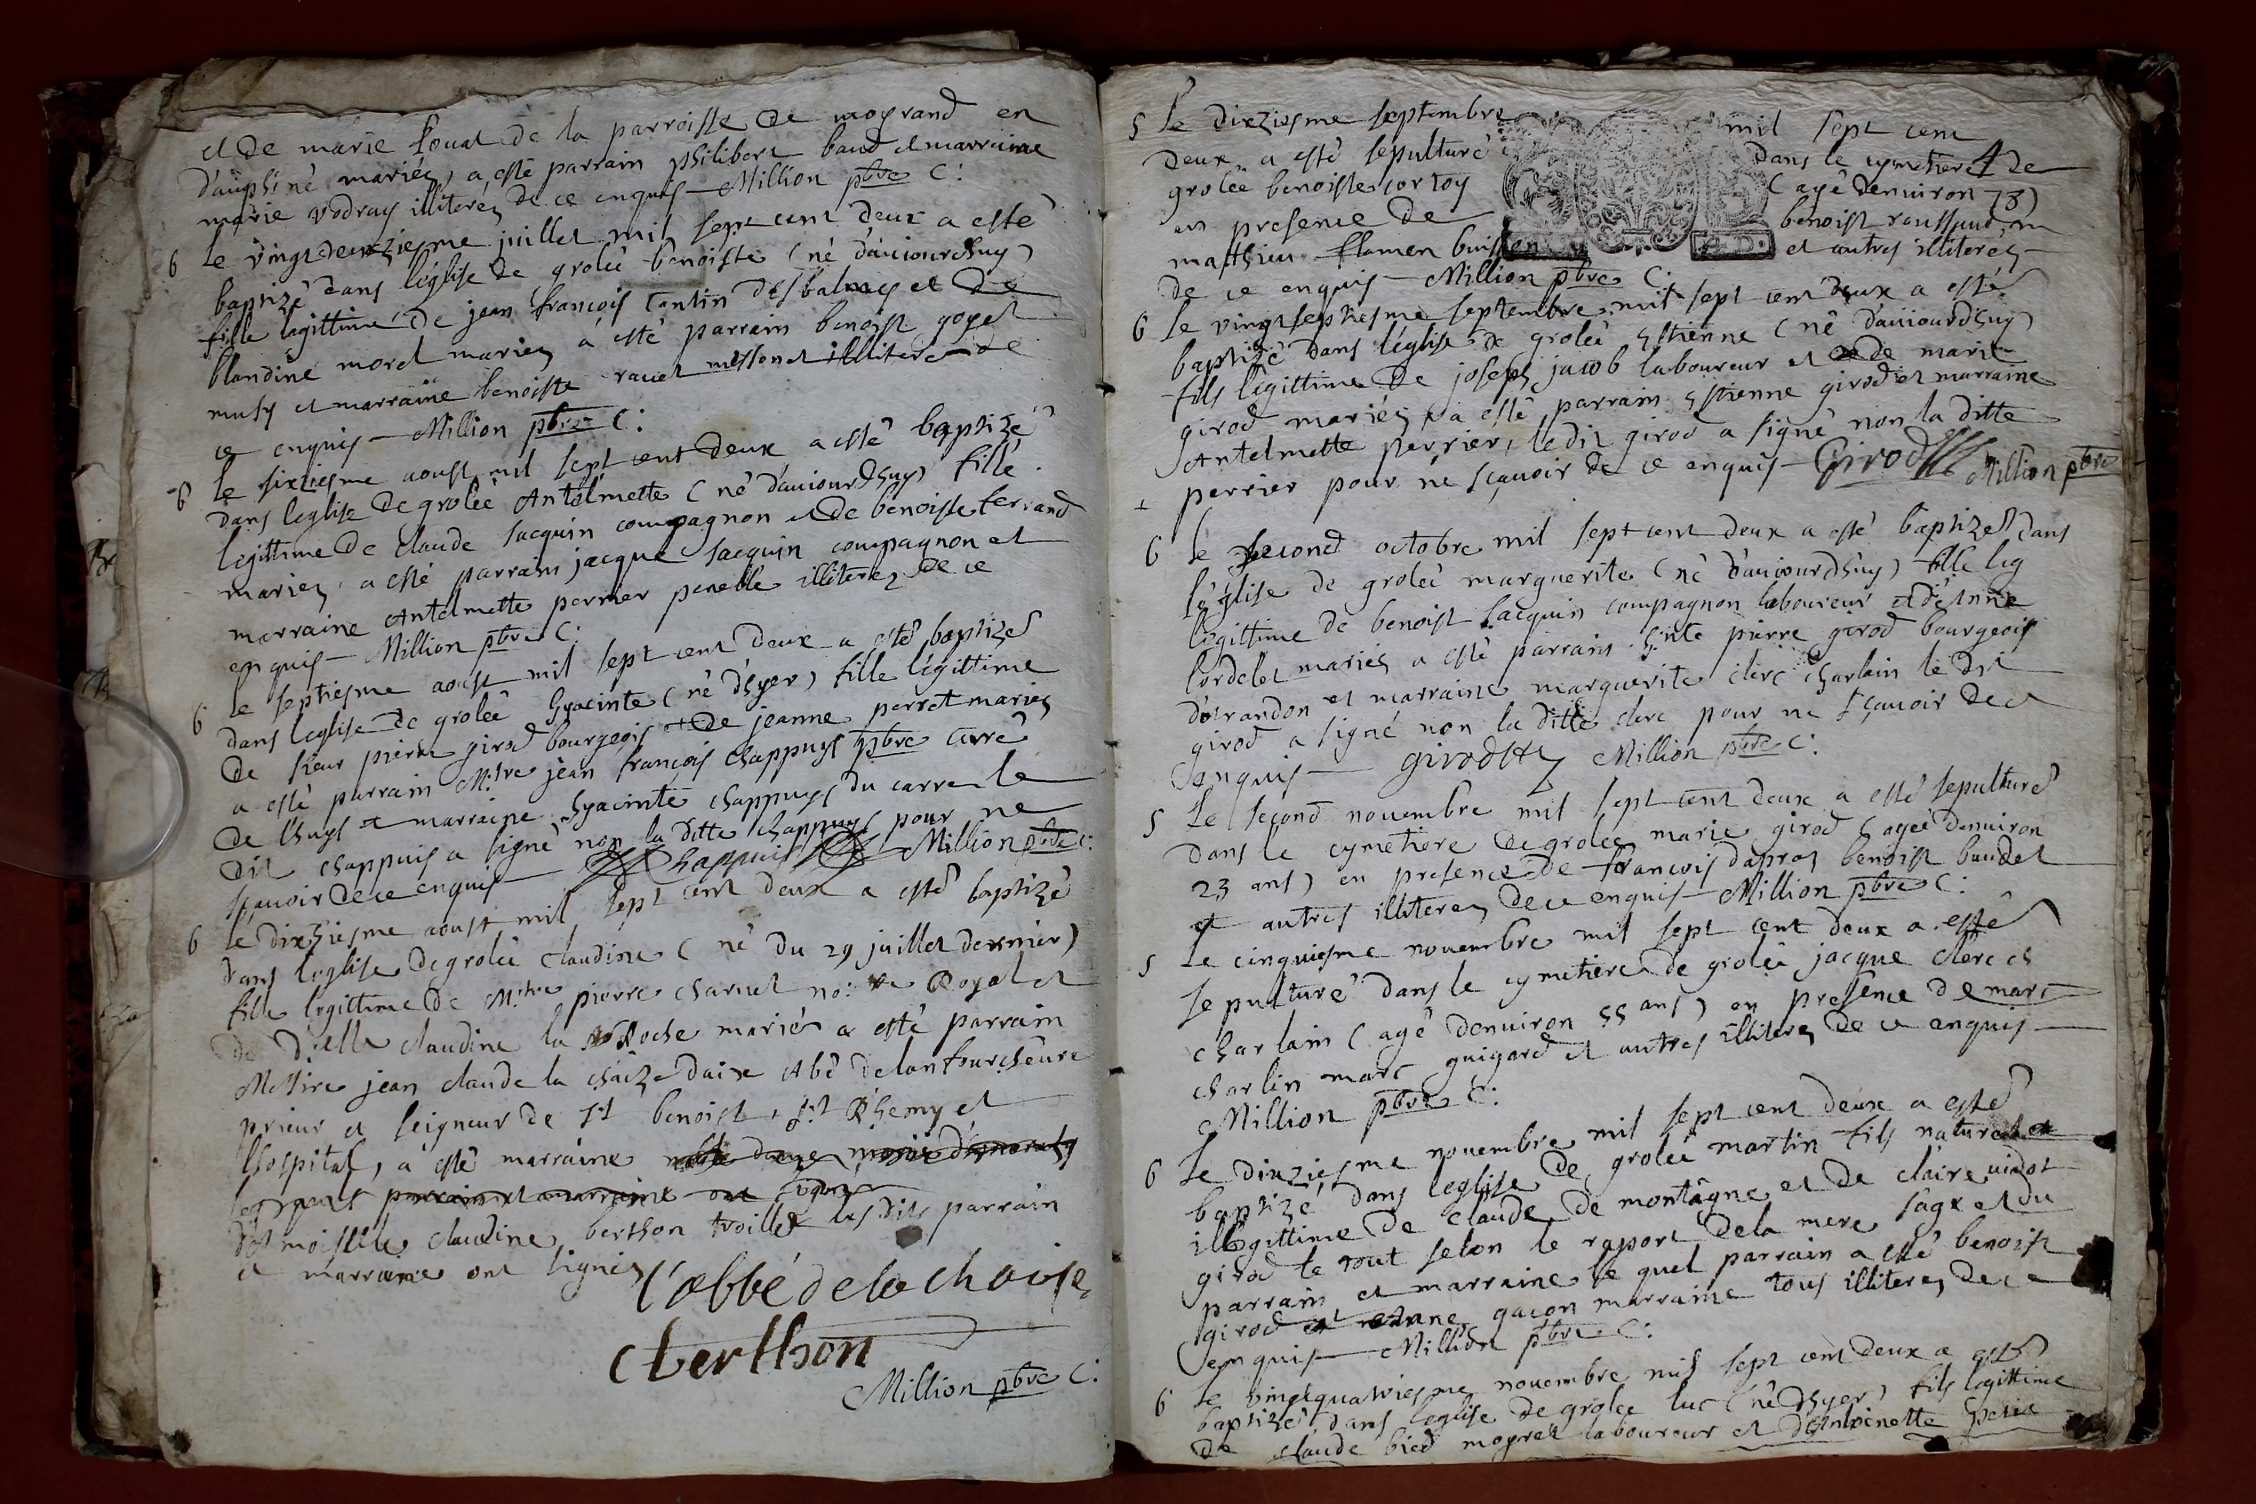 et de marie fouat de la parroisse de mogrand en
dauphiné mariés, a esté parrain philibert baud et marraine
marie vodray illiterés de ce enquis - Million pbre C:
6 le vingtdeuxziesme juillet mil sept cent deux a esté
baptizé dans leglise de grolée benoiste (né daujourdhuy)
fille legittime de jean françois tantin desbalmes et de
blandine morel mariez a esté parrain benoist goget
musy et marraine benoiste ravet messond illitere de
ce enquis - Million pbre C:
6 le sixziesme aoust mil sept cent deux a esté baptizé
dans leglise de grolée Antelmette (né daujourdhuy) fille
legittime de Claude Jacquin compagnon et de benoiste ferrand
mariez, a esté parrain jacque Jacquin compagnon et
marraine Antelmette perrier penelle illiterez de ce
enquis - Million pbre C:
6 le septiesme aoust mil sept cent deux a esté baptizé
dans leglise de grolée hyacinte (né dhyer) fille legittime
de sieur pierre girod bourgeois et de jeanne perret mariez
a esté parrain M.tre jean françois Chappuys pbre curé
de lhuys et marraine hyacinte chappuys du carre le
dit chappuis a signé non la ditte chappuys pour ne
sçavoir de ce enquis - Chappuis Million pbre C:
6 le dixziesme aoust mil sept cent deux a esté baptizé
dans leglise de grolée claudine (né du 29 juillet dernier)
fille legittime de M.tre pierre charvet no:re Royal et
de d'elle claudine la Roche mariés a esté parrain
Messire jean claude la chaize daix Abé de lanfourcheure
prieur et seigneur de S.t benoist, S.t Rhemy et
lhospital, a esté marraine noble dame marie
les parrain et marraine ont signé
d'emoiselle claudine berthon troillet lesdits parrain
et marraine ont signés
l'abbé de la Chaise
C berthon
Million pbre C:
4
5 le dixziesme septembre mil sept cent
deux a esté sepulturé dans le cymetiere de
grolée benoiste cortoy (agé denviron 78)
en presence de benoist roussaud
matthieu flamen buisson et autres illiterez
de ce enquis - Million pbre C:
6 le vingtseptiesme septembre mil sept cent deux a esté
baptizé dans leglise de grolée Estienne (né daujourdhuy)
fils legittime de joseph jacob laboureur et de marie
girod mariés, a esté parrain Estienne girod et marraine
Antelmette perrier, le dit girod a signé non la ditte
perrier pour ne sçavoir de ce enquis - Girod Million pbre
6 le second octobre mil sept cent deux a esté baptizé dans
léglise de grolée marguerite (né daujourdhuy) fille leg
legittime de benoist Jacquin compagnon laboureur et de Anne
cordelet mariés a esté parrain pierre girod bourgeois
dotrandon et marraine marguerite clerc charlain le dit
girod a signé non la ditte clerc pour ne sçavoir de ce
enquis - girod Million pbre C:
5 Le second novembre mil sept cent deux a esté sepulturé
dans le cymetiere de grolée marie girod (agée denviron
23 ans) en presence de françois dapras benoist baudet
et autres illiterez de ce enquis - Million pbre C:
5 Le cinquiesme novembre mil sept cent deux a esté
sepulturé dans le cymetiere de grolée jacque clerc ch
charlain (agé denviron 55 ans) en presence de marc
charlin marc guigard et autres illiterez de ce enquis -
Million pbre C:
6 Le dixziesme novembre mil sept cent deux a esté
baptizé dans leglise de grolée martin fils naturel et
illegittime de Claude de montagne et de claire vidot
girod le tout selon le raport de la mere sage et du
parrain et marraine le quel parrain a esté benoist
girod et Anne gacon marraine tous illiterez de ce
enquis - Million pbre C:
6 Le vingtquatriesme novembre mil sept cent deux a esté
baptizé dans leglise de grolée luc (né dhyer) fils legittime
de claude bied mogrel laboureur et dAntoinette